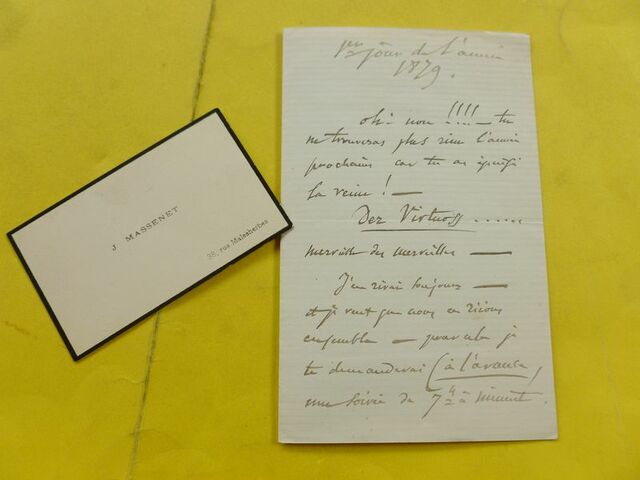 J. MASSENET
38, rue Malesherbes
1er jour de l'année
1879.
oh! non !!!! — tu
ne trouveras plus rien l'année
prochaine car tu as épuisé
la veine ! —
Der Virtuos .....
merveille des merveilles —
J'en rirai toujours —
et je veux que nous en riions
ensemble — pour cela je
te demanderai (à l'avance,
une soirée de 7 ½ à minuit.